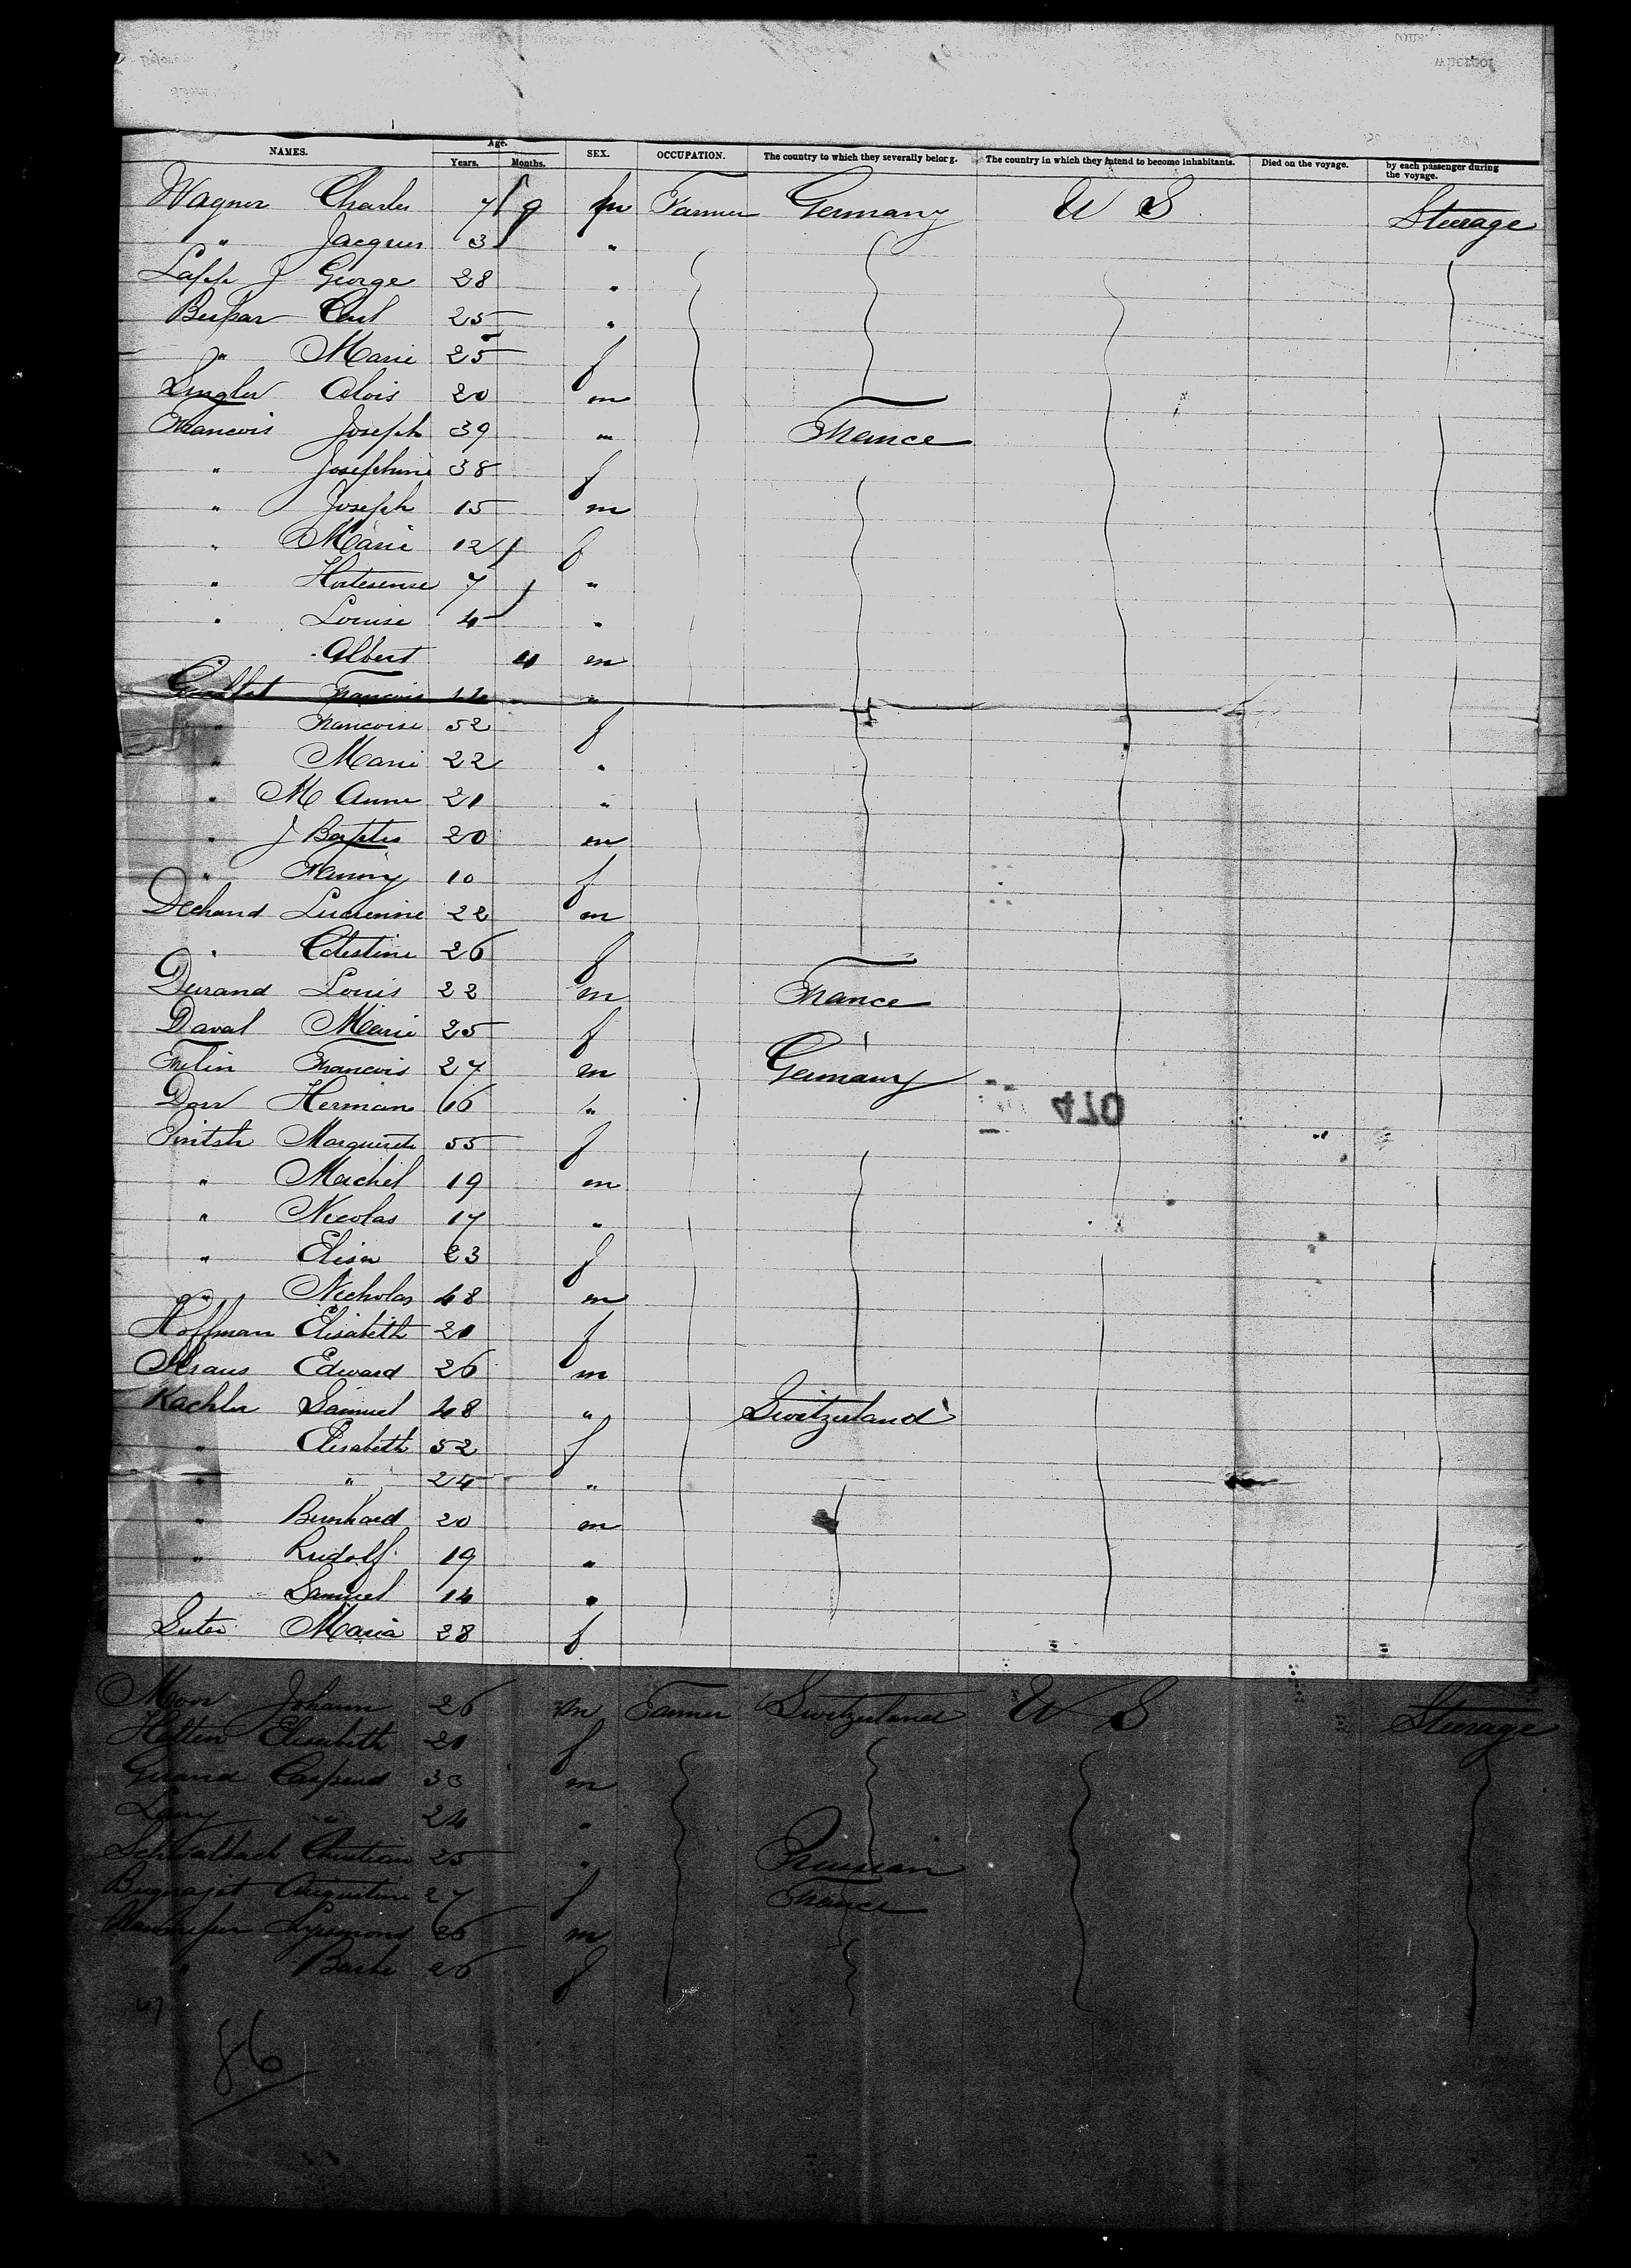 NAMES. Age. Years. Months. SEX. OCCUPATION. The country to which they severally belong. The country in which they intend to become inhabitants. Died on the voyage. by each passenger during the voyage.
Wagner Charles 7 9 m Farmer Germany U S Steerage
" Jacques 3 "
Lapp J George 28 "
Carl 25 "
" Marie 25 f
Lingler Alois 20 m
Francois Joseph 39 m France
" Josephine 38 f
" Joseph 15 m
" Marie 12 f
" Hortesense 7 "
" Louise 4 "
Albert 4 m
Francois "
" Francoise 52 f
" Marie 22 "
" M Anne 21 "
" J Baptis 20 m
" Fanny 10 f
Dechand 22 m
" Celestine 26 f
Durand Louis 22 m France
Daval Marie 25 f
Francois 27 m Germany
Dorr Herman 16 "
Pintsh Marguerite 55 f
" Michel 19 m
" Nicolas 17 "
" Elisa 23 f
" Nicholas 48 m
Hoffman Elisabeth 21 f
Straus Edward 26 m
Kachler Samuel 48 " Switzerland
" Elisabeth 52 f
" " 24 "
" Bernhard 20 m
" Rudolf 19 "
Samuel 14 "
Suter Maria 28 f
470
Moor Johann 26 m Farmer Switzerland U S Steerage
Elisabeth 21 f
Girand 30 m
" 24 "
Schwalbach Christian 25 " Prussian
Augustine 27 f France
26 m
" 26 f
47
86